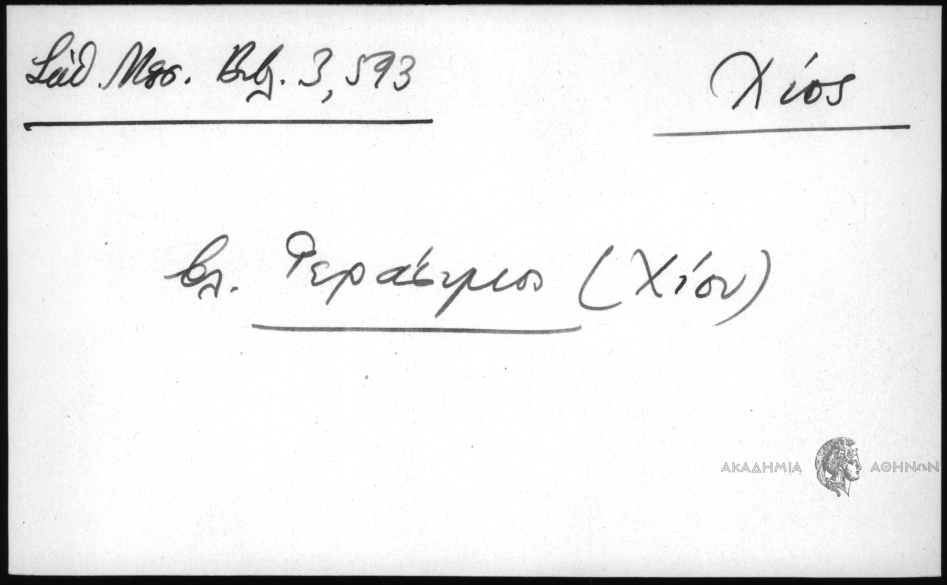 Σάθ. Μεσ. Βιβ. 3, 593
Χίος
βλ. Γεράσιμος (Χίου)
ΑΚΑΔΗΜΙΑ ΑΘΗΝΩΝ